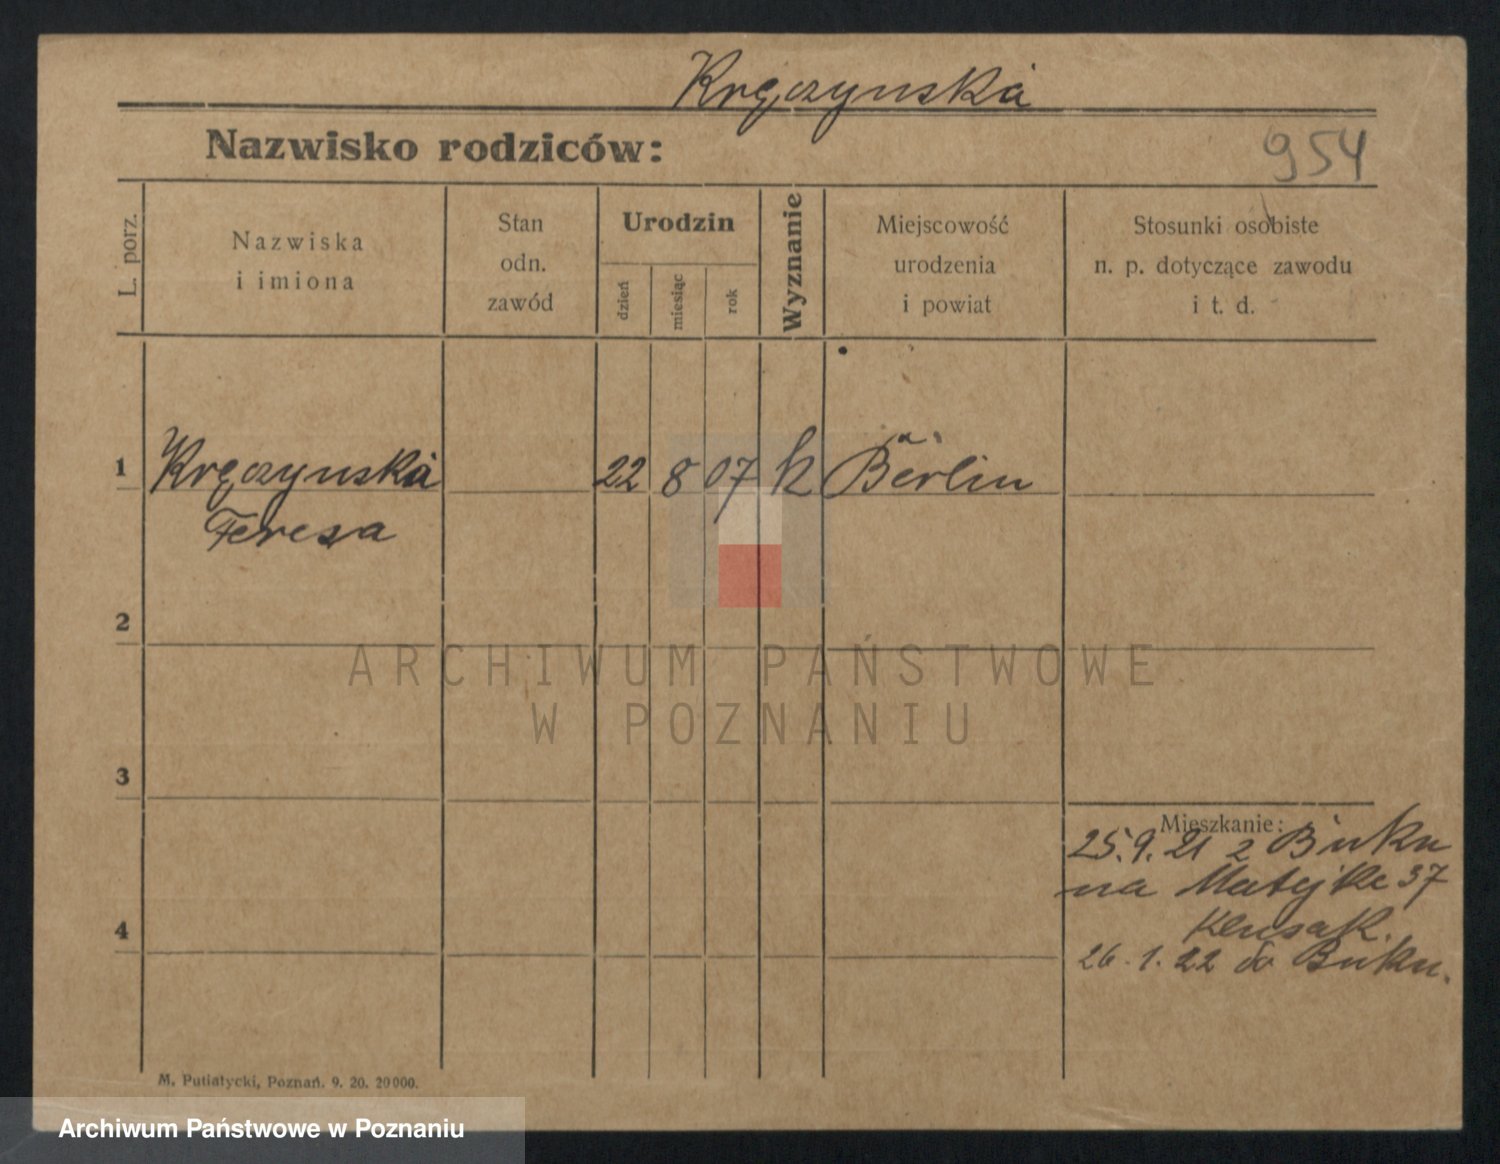 Kręczynska
Nazwisko rodziców:
954
L. porz.
Nazwiska
i imiona
Stan
odn.
zawód
Urodzin
dzień
miesiąc
rok
Wyznanie
Miejscowość
urodzenia
i powiat
Stosunki osobiste
n. p. dotyczące zawodu
i t. d.
1 Kręczynska 22 8 07 k Berlin
Teresa
2
ARCHIWUM PAŃSTWOWE
W POZNANIU
3
Mieszkanie:
25.9.21 z Buku
na Matejke 37
4
26.1.22 do Buku.
M. Putiatycki, Poznań. 9. 20. 20000.
Archiwum Państwowe w Poznaniu